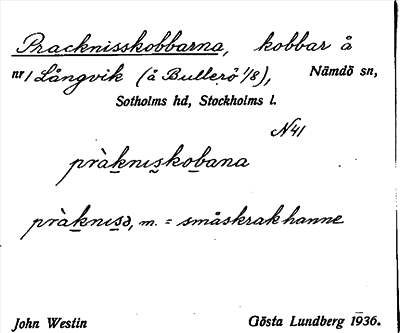 Pracknisskobbarna, kobbar å
nr 1 Långvik (å Bullerö 1/8), Nämdö sn,
Sotholms hd, Stockholms l.
N41
pràkniskobana
pràknisə, m. = småskrakhanne
John Westin Gösta Lundberg 1936.